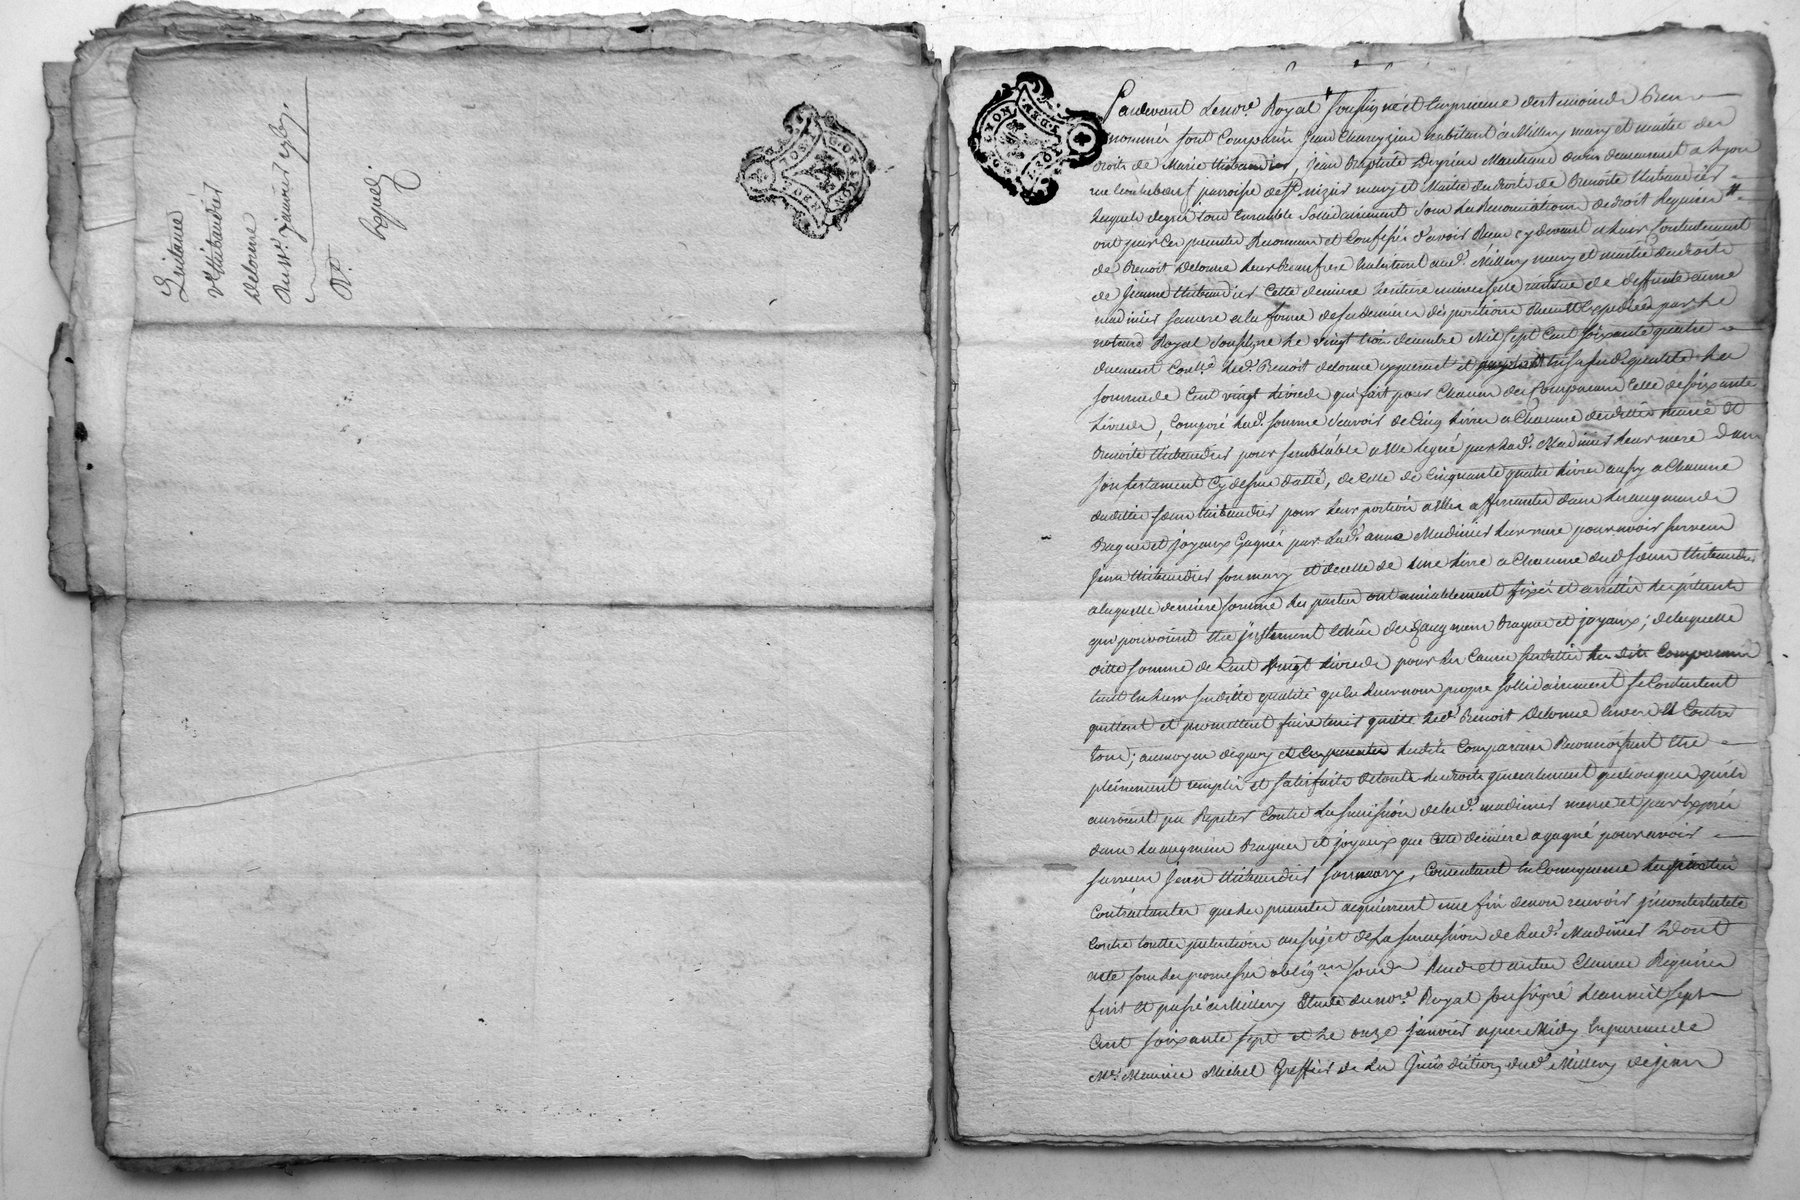 Quitance
Thibaudier
Delorme
janvier 1767
Pardevant Lenore. Royal soussigné et Enpresence destemoins Bien
nommés sont Comparu Jean Charezieu habitant à Millery mary et maitre des
droits de Marie thibaudier, Jean Baptiste Marchand demeurant a Lyon
paroisse de St. nizier mary et Maitre des droits de Benoite thibaudier
Lesquels degrés tous Ensemble Sollidairement sous les Renonciations de droit Requises
ont par Ces presentes Reconnu et Confessé d'avoir Reçu cy devant a leur Contentement
de Benoit Delorme leur beaufrere habitant aud. Millery mary et maitre des droits
de Jeanne thibaudier Cette derniere heritiere universelle de deffunte anne
madinier sa mere a la forme de sa derniere disposition Reçue et Expediée par Le
notaire Royal soussigné Le vingt trois Mil Sept Cent soixante quatre
duement Conllé. Led. Benoit delorme et quantité La
somme de Cent vingt Livres qui fait pour Chacun des Comparans Celle de soixante
Livres, Composé lad. somme Sçavoir de Cinq Livres a Chacune desdittes marie et
Benoite thibaudier pour semblable a elle legué par lad. Madinier leur mere dans
son testament Cy dessus datté, de Celle de Cinquante quatre Livres aussy a Chacune
desdittes soeurs thibaudier pour leur portion a elles afferante dans les augments
Bagues et joyaux Gagnés par lad. anne Madinier leur mere pour avoir survecu
Jean thibaudier son mary et de celle de une Livre a Chacune desd. soeurs thibaudier
a laquelle derniere somme les parties ont amiablement fixés et arrettés les
qui pouvoient etre justement des augmens Bagues et joyaux; de laquelle
ditte somme de Cent vingt Livres pour les Causes susdittes les dits Comparans
tant En leur susditte qualité qu'En leur nom propre sollidairement se Contentent
quittent et promettent faire tenir quitte Led. Benoit Delorme Envers et Contre
tous; au moyen dequoy lesdits Comparans Reconnoissent etre
pleinement remplis et satisfaits detouts les droits generalement quelconques qu'ils
auroient pu Repeter Contre La succession de lad. madinier mere et par Exprès
dans les augmens Bagues et joyaux que Cette derniere a gagné pour avoir
survecu Jean thibaudier son mary, Consentant En Consequence les parties
Contractantes que les presentes acquierent une fin de non recevoir jncontestable
Contre toutte pretention au sujet de La succession de lad. Madinier Dont
acte sous les promesses obligaon. soumis Rend. et autres Clauses Requises
fait et passé à Millery Etude dunore. Royal soussigné L'an mil sept
Cent soixante sept et Le onze janvier apres Midy En presence de
Me. Maurice Michel Greffier de La Jurisdiction dud. Millery de jean